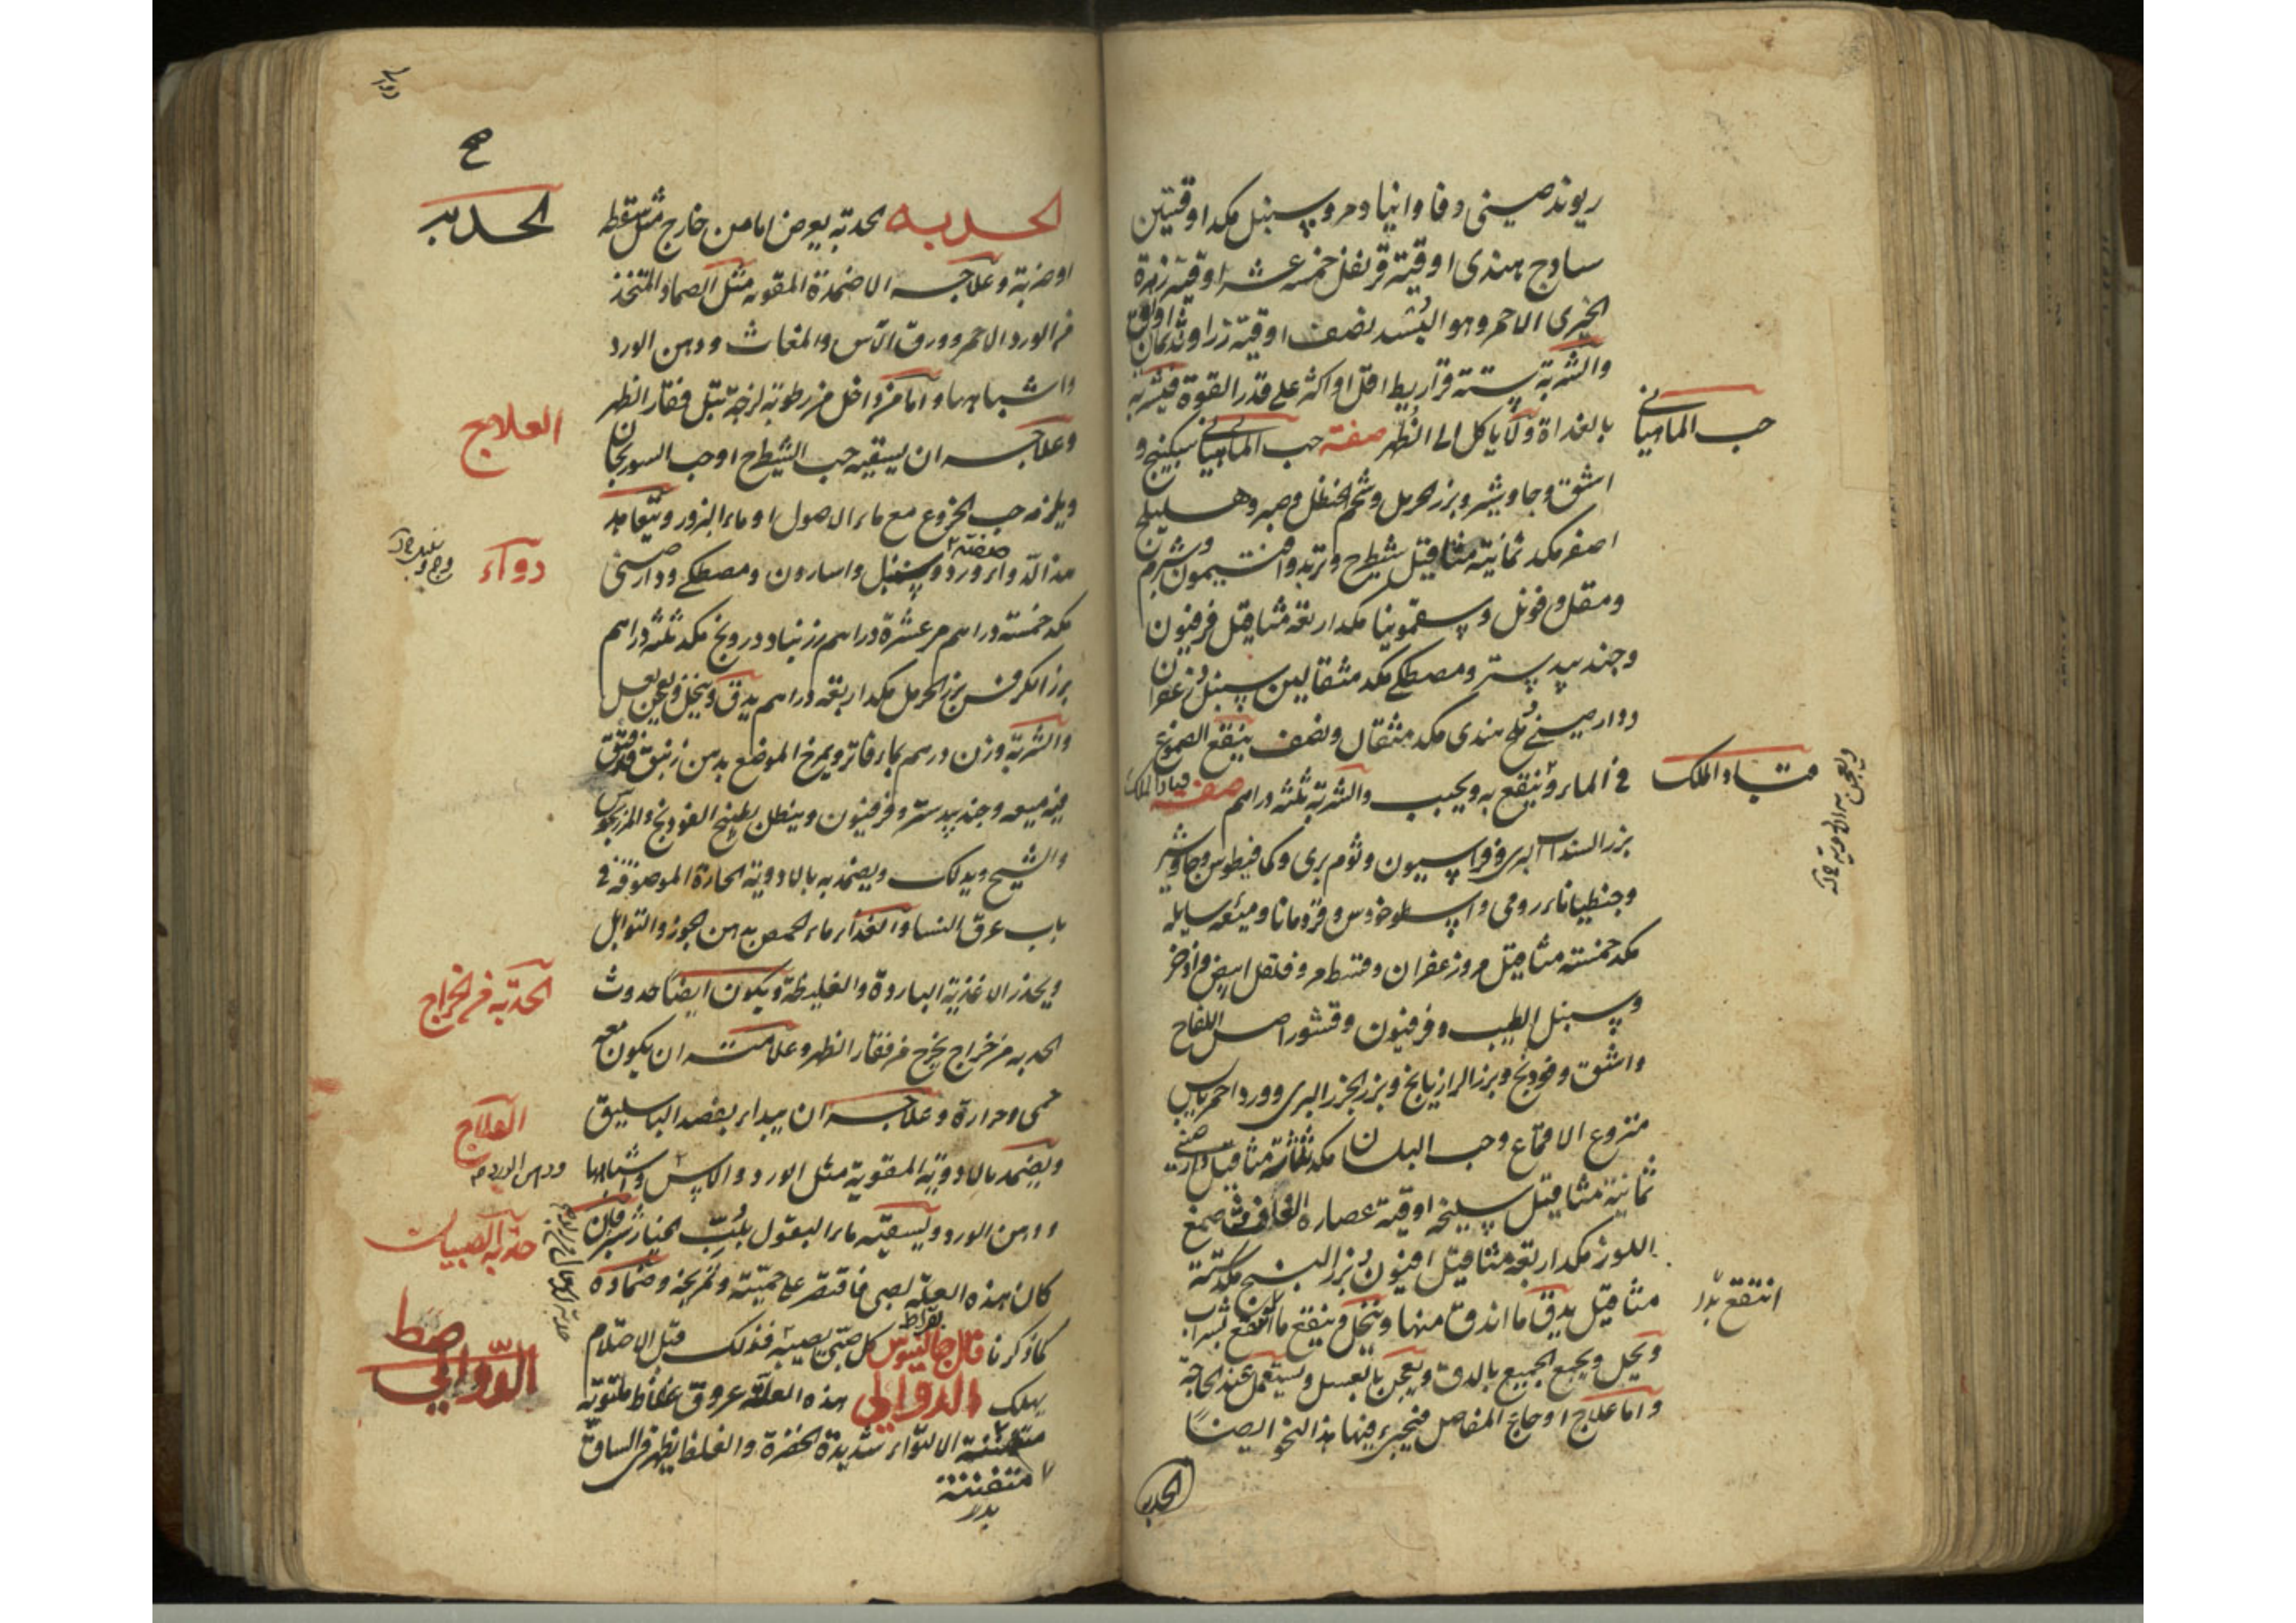 ريوند صينى وفاوانيا ومر وسنبل مكد اوقيتين
ساوج هندى اوقية قرنفل خمسة عشر اوقية زهرة
الخيرى الاحمر وهو البسد نصف اوقية زراوند اوقيتان
والشربة ستة قراريط اقل او اكثر على قدر القوة فيشربه
بالغداة ولا ياكل الى الظهر صفة حب الماهيانى سكبينج و
حب الماهيانى
اشق وجاوشير وبزر الحرمل وشحم الحنظل وصبر وهليلج
اصفر مكد ثمانية مثاقيل شيطرح وتربد وافتيمون وشبرم
ومقل وفوتل وسقمونيا مكد اربعة مثاقيل فرفيون
وجندبيدستر ومصطكى مكد مثقالين سنبل وزعفران
ودارصينى وملح هندى مكد مثقال ونصف ينقع الصموغ
فى الماء وينقع به ويحبب والشربة ثلثة دراهم صفة قباد الملك
قباد الملك
بزر السنداب البرى وفراسيون وثوم برى وكمافيطوس وجاوشير
وجنطيانا رومى واسطوخودس وقردمانا وميعه سايله
مكد خمسة مثاقيل مر وزعفران وقسط مر وفلفل ابيض واذخر
وسنبل الطيب وفرفيون وقشور اصل اللفاح
واشق وفودنج وبزر الرازيانج وبزر الجزر البرى وورد احمر يابس
منزوع الاقماع وحب البلسان مكد ثلثة مثاقيل دارصينى
ثمانية مثاقيل سليخه اوقية عصارة الغافث صمغ
اللوز مكد اربعة مثاقيل افيون وبزر البنج مكد ستة
مثاقيل يدق ما اندق منها وينخل وينقع ما انتقع بشراب
انتقع بدل
ويحل ويجمع الجميع بالدق ويعجن بالعسل ويستعمل عند الحاجة
واما علاج اوجاع المفاصل فيجرى فيها هذا النحو ايضا
الحدبه
الحدبه
الحدبه الحدبة يعرض اما من خارج مثل سقطه
او ضربة وعلاجه الاضمدة المقويه مثل الضماد المتخذ
من الورد الاحمر وورق الآس والمغاث ودهن الورد
واشباهها واما من داخل من رطوبة لزجة تبل فقار الظهر
العلاج
وعلاجه ان يسقيه حب الشيطرح او حب السورنجان
ويلزمه حب الخروع مع ماء الاصول او ماء البزور ويتعاهد
دواء
هذا الدواء صفته ورد وسنبل واسارون ومصطكى ودارصينى
مكد خمسة دراهم مر عشرة دراهم زرنباد ودرونج مكد ثلثة دراهم
بزر الكرفس بزر الحرمل مكد اربعة دراهم يدق وينخل ويعجن بعسل
والشربة وزن درهم بماء فاتر ويمرخ الموضع بدهن زنبق قد فتق
فيه ميعه وجندبيدستر وفرفيون وينطل بطبيخ الفودنج والمرزنجوش
والشيح ويدلك ويضمد به بالادوية الحارة الموصوفة فى
باب عرق النسا والغذاء ماء الحمص بدهن الجوز والتوابل
ويحذر الاغذية الباردة والغليظة ويكون ايضا حدوث
الحدبه من الخراج
الحدبه من خراج يخرج من فقار الظهر وعلامته ان يكون معه
حمى وحرارة وعلاجه ان يبداء بفصد الباسليق
العلاج
ويضمد بالادوية المقوية مثل الورد والاس واشباهها
ودهن الورد
ودهن الورد ويسقيه ماء البقول بلب الخيار شنبر فان
حدبه الصبيان
كان هذه العلة لصبى فاقتصر على حميته وتمريخه وضماده
كما ذكرنا قال جالينوس بقراط كل صبى يصيبه فذلك قبل الاحتلام
يهلك الدوالى هذه العلة عروق غلاظ ملتوية
الدوالى
متفننة الالتواء شديدة الخضرة والغلظ يظهر فى الساق
متفننة
بدل